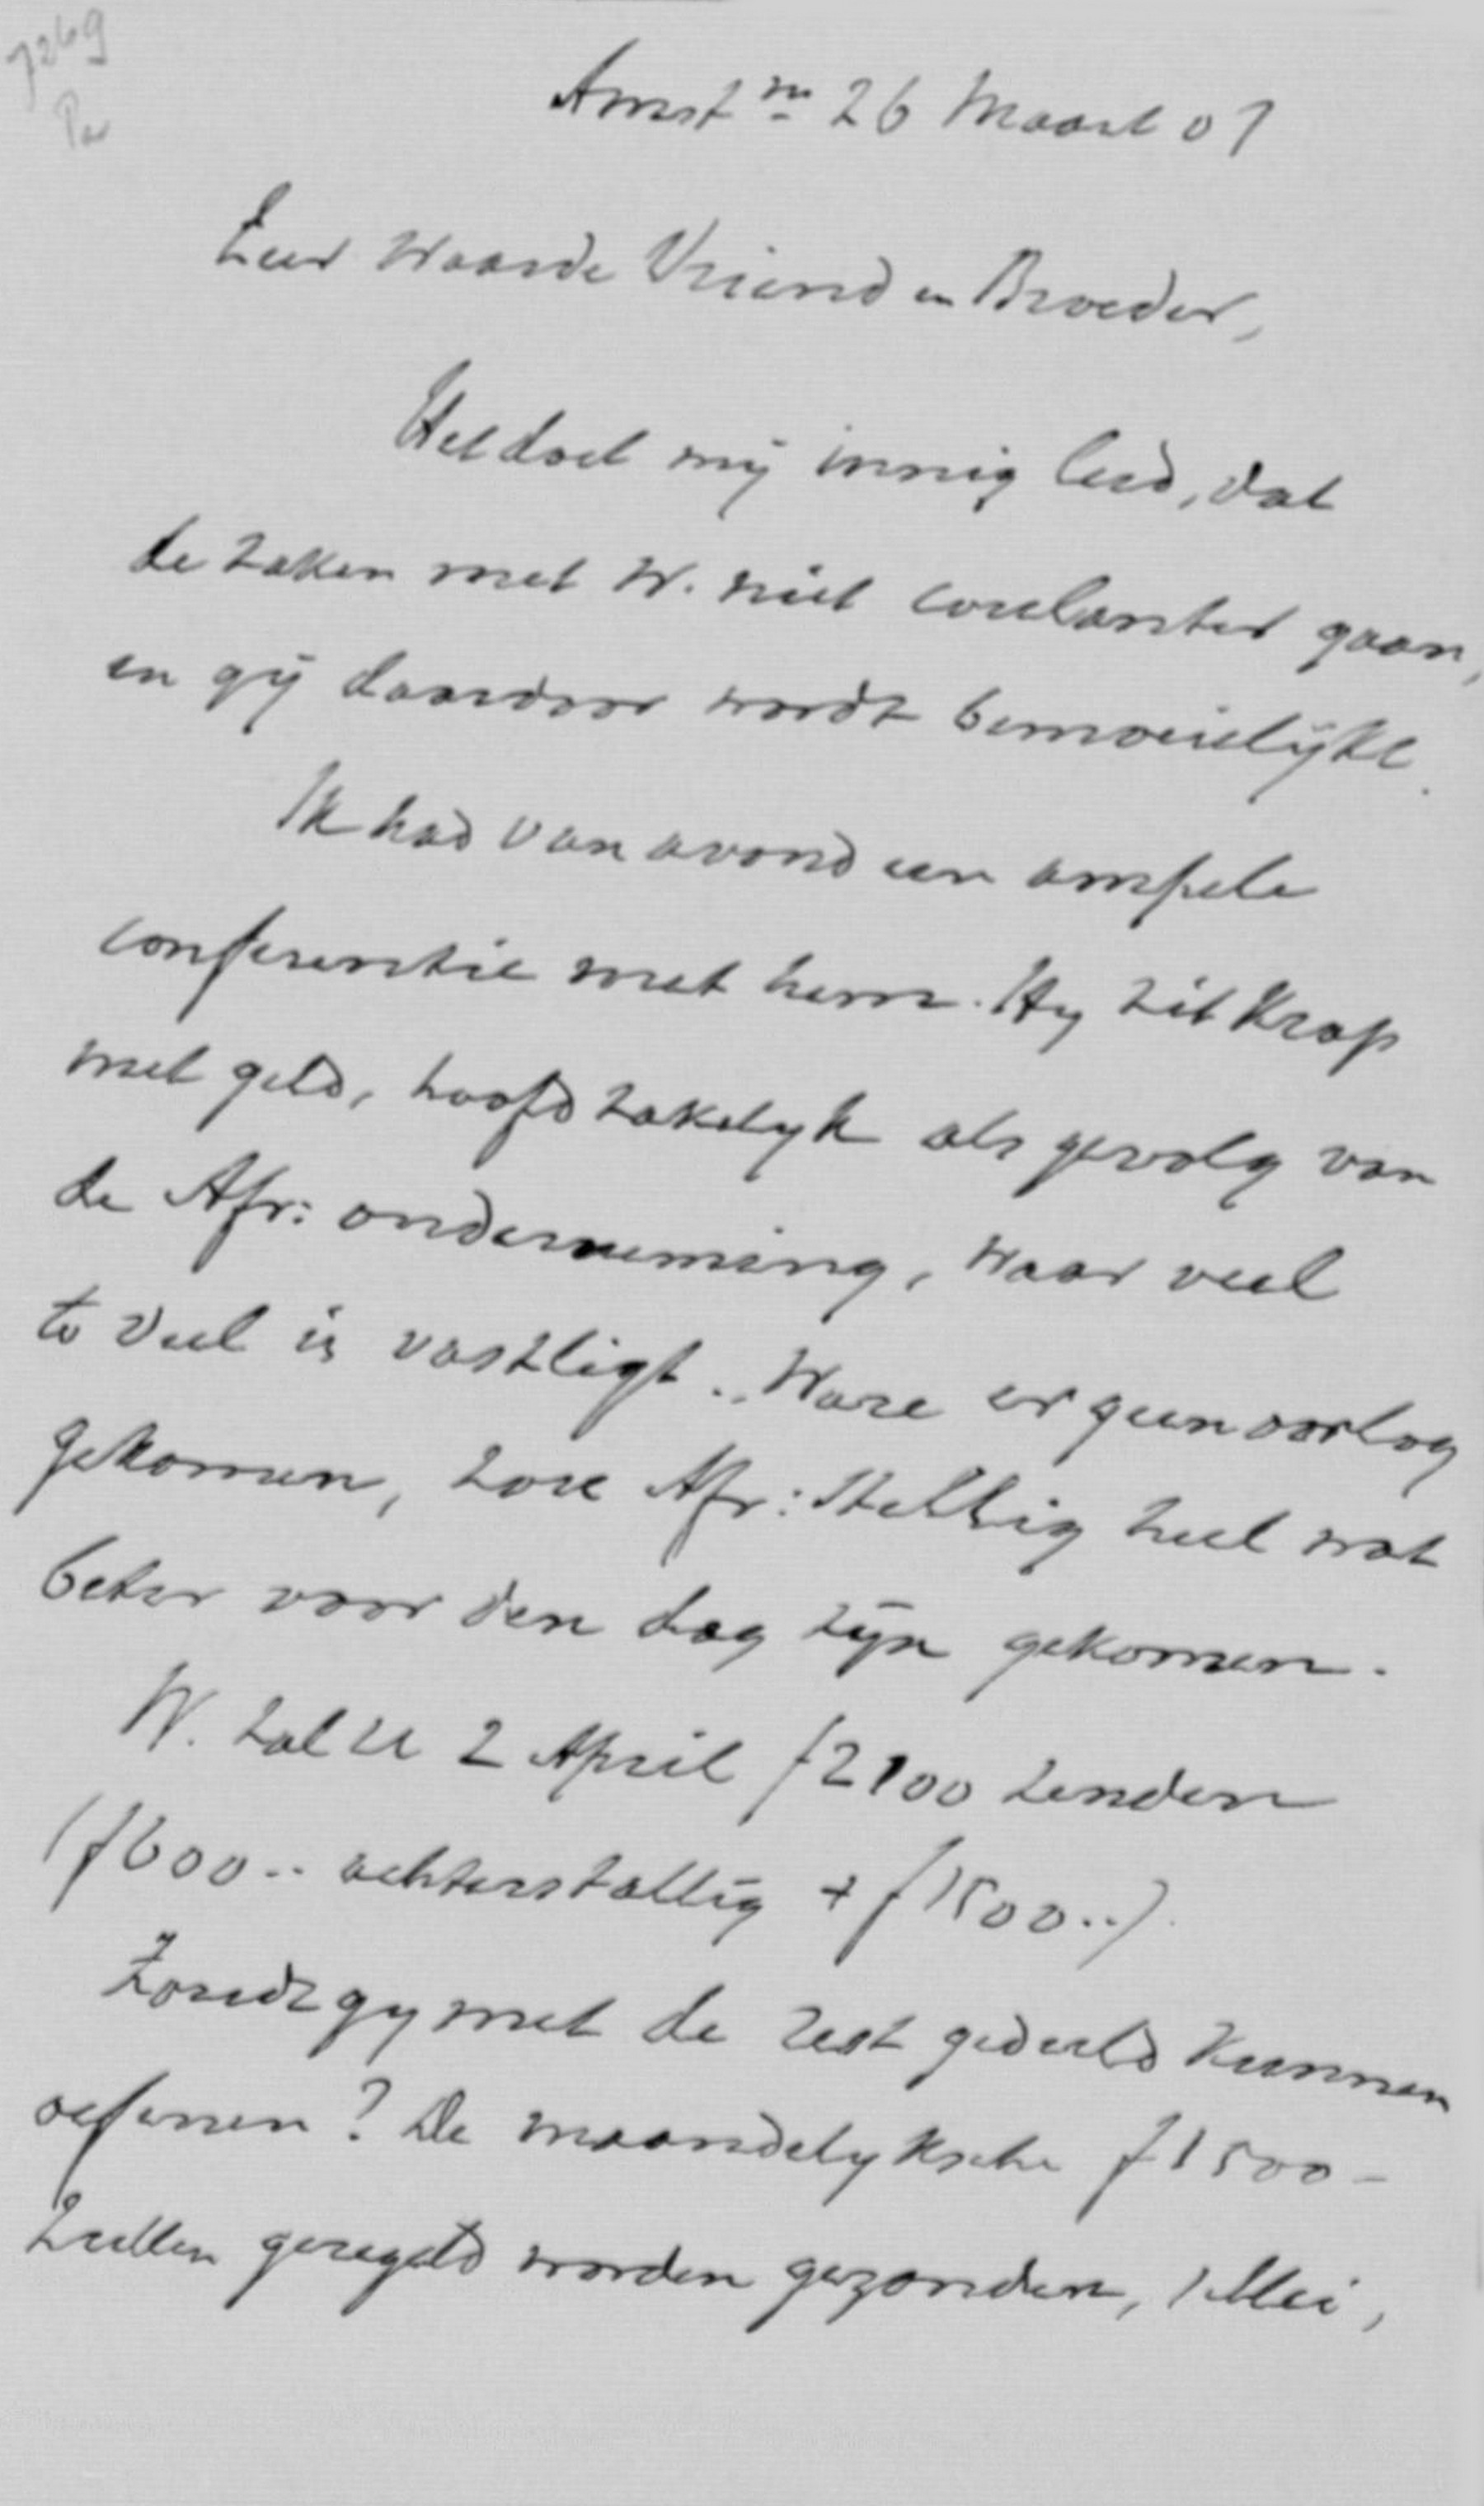 7269
Pa
Amstm 26 Maart 07
Zeer Waarde Vriend en Broeder,
Het doet mij innig leed, dat
de zaken met W. niet coulanter gaan,
en gij daardoor wordt bemoeielijkt.
Ik had van avond een ampele
conferentie met hem. Hy zit krap
met geld, hoofdzakelyk als gevolg van
de Afr: onderneming, waar veel
te veel in vastligt. Ware er geen oorlog
gekomen, zou Afr: stellig heel wat
beter voor den dag zijn gekomen.
W. zal u 2 April f2100 zenden
(f600.- achterstallig + f1500.-)
Zoudt gy met de rest geduld kunnen
oefenen? De maandelyksche f1500-
zullen geregeld worden gezonden, 1 Mei,